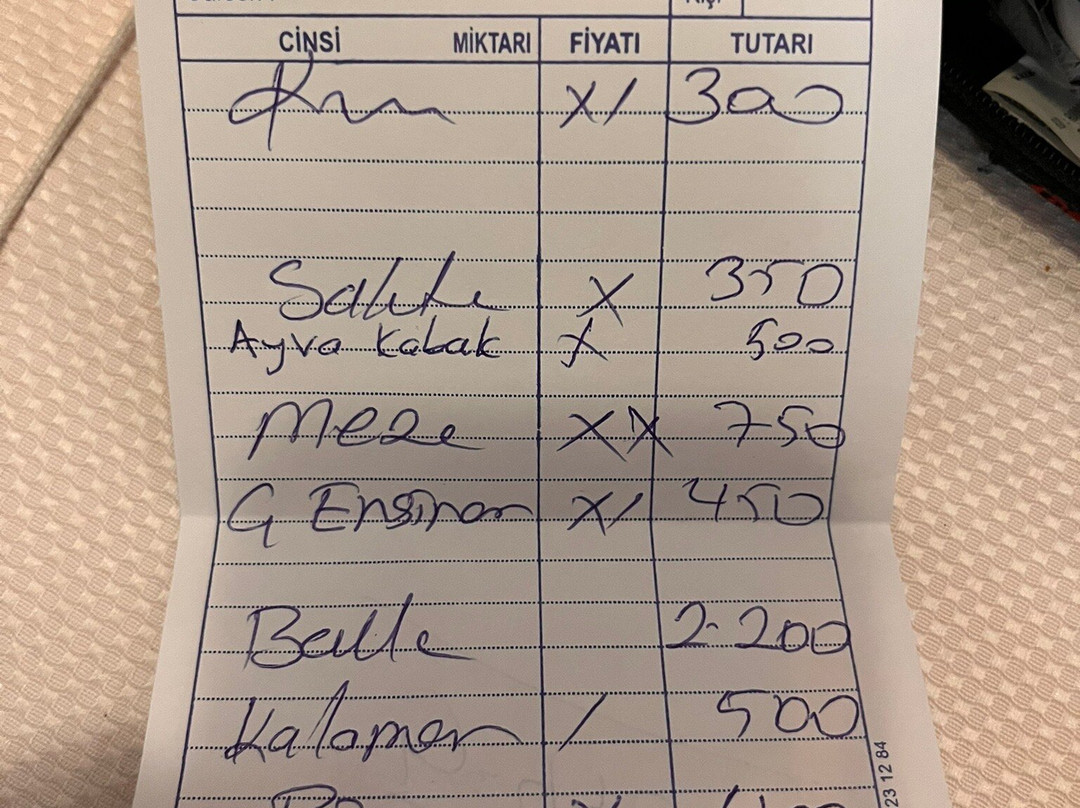 CİNSİ MİKTARI FİYATI TUTARI
X/ 300
Salata X 350
Ayva Kabak X 500
Meze XX 750
G Enginar X/ 450
Balık 2.200
Kalamar / 500
23 12 84